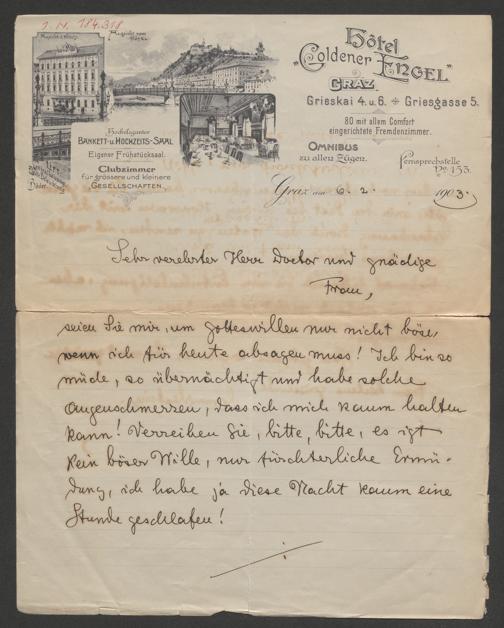 I. N. 184.318
Hôtel
"Goldener Engel"
GRAZ
Grieskai 4. u. 6. Griesgasse 5.
80 mit allem Comfort
eingerichtete Fremdenzimmer.
OMNIBUS
zu allen Zügen.
Fernsprechstelle
No 153.
Hocheleganter
BANKETT- U. HOCHZEITS-SAAL
Eigener Frühstücksaal.
Clubzimmer
für grössere und kleinere
GESELLSCHAFTEN.
Graz am 6. 2. 1903.
Sehr verehrter Herr Doctor und gnädige
Frau,
seien Sie mir, um gotteswillen nur nicht böse,
wenn ich für heute absagen muss! Ich bin so
müde, so übernächtigt und habe solche
Augenschmerzen, dass ich mich kaum halten
kann! Verzeihen Sie, bitte, bitte, es ist
kein böser Wille, nur fürchterliche Ermü-
dung, ich habe ja diese Nacht kaum eine
Stunde geschlafen!